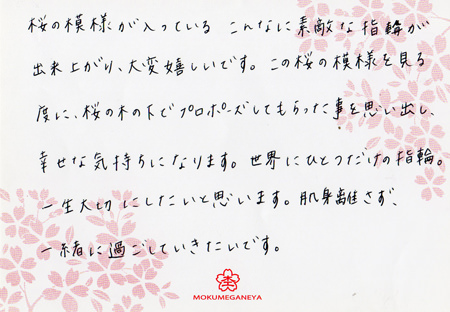 桜の模様が入っている こんなに素敵な指輪が
出来上がり、大変嬉しいです。この桜の模様を見る
度に、桜の木の下でプロポーズしてもらった事を思い出し、
幸せな気持ちになります。世界にひとつだけの指輪。
一生大切にしたいと思います。肌身離さず、
一緒に過ごしていきたいです。
MOKUMEGANEYA